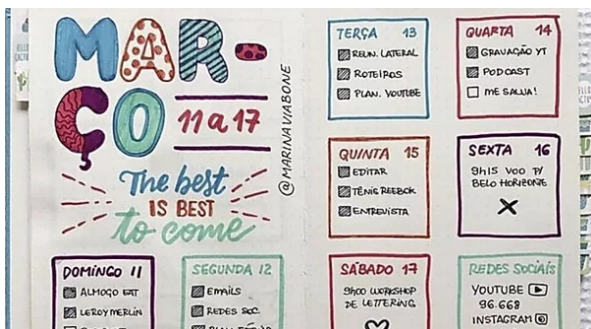 MAR-
ÇO
11 a 17
@MARINAVIABONE
The best
IS BEST
to come
DOMINGO 11
ALMOÇO EXT
LEROY MERLIN
SEGUNDA 12
EMAILS
REDES SOC.
TERÇA 13
REUN. LATERAL
ROTEIROS
PLAN. YOUTUBE
QUARTA 14
GRAVAÇÃO YT
PODCAST
ME SALVA!
QUINTA 15
EDITAR
TÊNIS REEBOK
ENTREVISTA
SEXTA 16
9h15 VOO P/
BELO HORIZONTE
SÁBADO 17
9h00 WORKSHOP
DE LETTERING
REDES SOCIAIS
YOUTUBE
96.668
INSTAGRAM